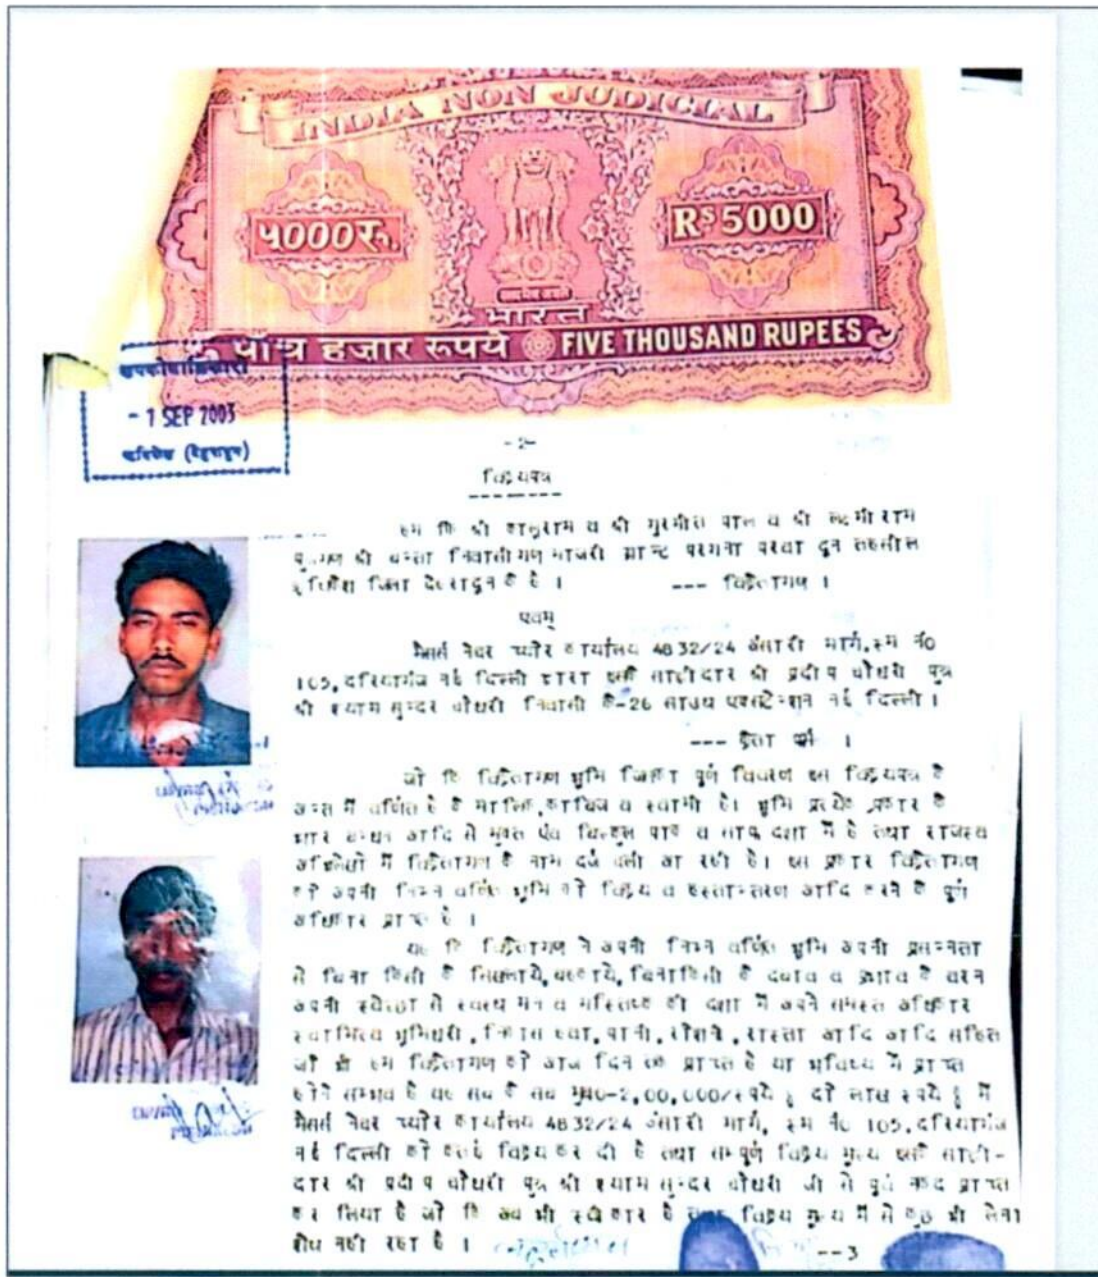 INDIA NON JUDICIAL
५000रु.
Rs 5000
भारत
पाँच हजार रूपये FIVE THOUSAND RUPEES
उपकोषाधिकारी
- 1 SEP 2003
ऋषिकेश (देहरादून)
-2-
विक्रयपत्र
हम कि श्री कालूराम व श्री गुरमीत पाल व श्री लक्ष्मीराम
पुत्रगण श्री बन्ता निवासीगण माजरी ग्रान्ट परगना परवा दून तहसील
ऋषिकेश जिला देहरादून के है । --- विक्रेतागण ।
एवम्
मैसर्स नेचर च्योर कार्यालय 4832/24 अंसारी मार्ग, रूम नं0
105, दरियागंज नई दिल्ली द्वारा इसके साझीदार श्री प्रदीप चौधरी पुत्र
श्री श्याम सुन्दर चौधरी निवासी के-26 साउथ एक्सटेन्शन नई दिल्ली ।
--- क्रेता ।
जो कि विक्रेतागण भूमि जिसका पूर्ण विवरण इस विक्रयपत्र के
अन्त में वर्णित है के मालिक, काबिज व स्वामी है। भूमि प्रत्येक प्रकार के
भार बन्धन आदि से मुक्त एंव बिल्कुल पाक व साफ दशा में है तथा राजस्व
अभिलेखों में विक्रेतागण के नाम दर्ज चली आ रही है। इस प्रकार विक्रेतागण
को अपनी निम्न वर्णित भूमि को विक्रय व हस्तान्तरण आदि करने के पूर्ण
अधिकार प्राप्त है ।
यह कि विक्रेतागण ने अपनी निम्न वर्णित भूमि अपनी प्रसन्नता
से बिना किसी के सिखलाये, बहकाये, बिना किसी के दबाव व प्रभाव के वरन
अपनी स्वेच्छा से स्वस्थ मन व मस्तिष्क की दशा में अपने समस्त अधिकार
स्वामित्व भूमिधरी, निकास हवा, पानी, रोशनी, रास्ता आदि आदि सहित
जो भी हम विक्रेतागण को आज दिन तक प्राप्त है या भविष्य में प्राप्त
होने सम्भव है वह सब के सब मु0-2,00,000/रूपये दो लाख रूपये में
मैसर्स नेचर च्योर कार्यालय 4832/24 अंसारी मार्ग, रूम नं0 105, दरियागंज
नई दिल्ली को कतई विक्रय कर दी है तथा सम्पूर्ण विक्रय मूल्य इसके साझी-
दार श्री प्रदीप चौधरी पुत्र श्री श्याम सुन्दर चौधरी जी से पूर्व नकद प्राप्त
कर लिया है जो कि अब भी स्वीकार है विक्रय मूल्य में से कुछ भी लेना
शेष नही रहा है ।
--3